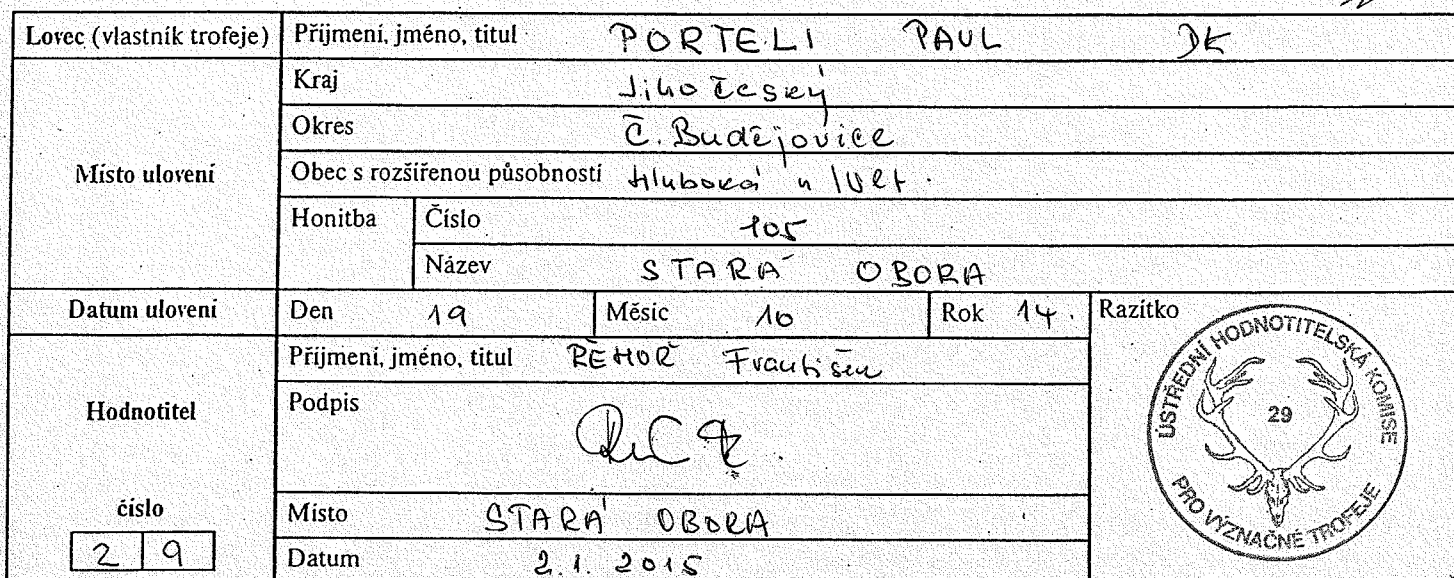 Lovec (vlastník trofeje) Příjmení, jméno, titul PORTELI PAUL DK
Místo ulovení
Kraj Jihočeský
Okres Č. Budějovice
Obec s rozšířenou působností Hluboká n/Vlt.
Honitba Číslo 105
Název STARÁ OBORA
Datum ulovení Den 19 Měsíc 10 Rok 14. Razítko
Hodnotitel
Příjmení, jméno, titul ŘEHOŘ František
Podpis
číslo
2 9
Místo STARÁ OBORA
Datum 2.1.2015
ÚSTŘEDNÍ HODNOTITELSKÁ KOMISE
29
PRO VÝZNAČNÉ TROFEJE